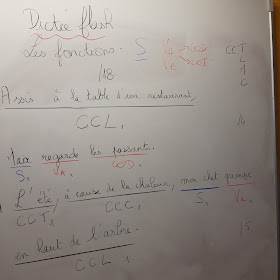 Dictée flash
Les fonctions. S Va COD CCT
Ve COI L
/18 C
Assis à la table d'un restaurant,
CCL 1 /4
Max regarde les passants.
S1 Va1 COD1
L'été, à cause de la chaleur, mon chat grimpe
CCT1 CCC1 S1 Va1
en haut de l'arbre.
CCL 1 /5